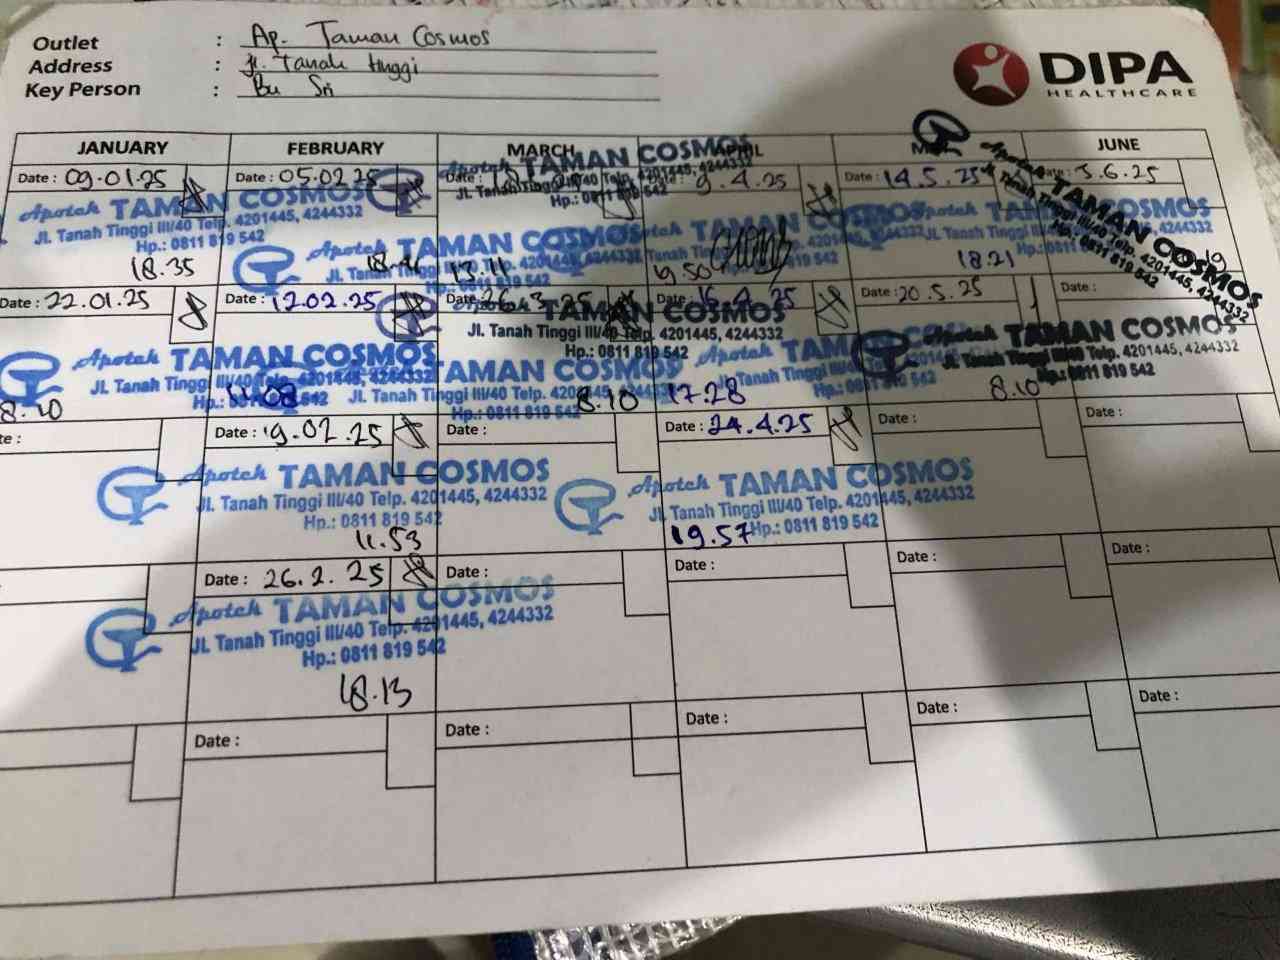 Outlet : Ap. Taman Cosmos
Address : Jl. Tanah tinggi
Key Person : Bu Sri
DIPA
HEALTHCARE
JANUARY FEBRUARY MARCH APRIL JUNE
Date : 09.01.25 Date : 05.02.25 Date : 9.4.25 Date : 14.5.25 3.6.25
Apotek TAMAN COSMOS
Jl. Tanah Tinggi III/40 Telp. 4201445, 4244332
Hp.: 0811 819 542
Apotek TAMAN COSMOS
Jl. Tanah Tinggi III/40 Telp. 4201445, 4244332
Hp.: 0811 819 542
TAMAN COSMOS
Jl. Tanah Tinggi III/40 Telp. 4201445, 4244332
Hp.: 0811 819 542
Apotek TAMAN COSMOS
Jl. Tanah Tinggi III/40 Telp. 4201445, 4244332
Hp.: 0811 819 542
18.35 13.11 19.50 18.21
Date : 22.01.25 Date : 12.02.25 Date : 16.4.25 Date : 20.5.25 Date :
Apotek TAMAN COSMOS
Jl. Tanah Tinggi III/40 Telp. 4201445, 4244332
Hp.: 0811 819 542
TAMAN COSMOS
Jl. Tanah Tinggi III/40 Telp. 4201445, 4244332
Hp.: 0811 819 542
Apotek TAMAN COSMOS
Jl. Tanah Tinggi III/40 Telp. 4201445, 4244332
Hp.: 0811 819 542
8.10 17.28 8.10
Date : 19.02.25 Date : Date : 24.4.25 Date : Date :
Apotek TAMAN COSMOS
Jl. Tanah Tinggi III/40 Telp. 4201445, 4244332
Hp.: 0811 819 542
11.53
Apotek TAMAN COSMOS
Jl. Tanah Tinggi III/40 Telp. 4201445, 4244332
Hp.: 0811 819 542
19.57
Date : 26.2.25 Date : Date : Date : Date :
Apotek TAMAN COSMOS
Jl. Tanah Tinggi III/40 Telp. 4201445, 4244332
Hp.: 0811 819 542
18.13
Date : Date : Date : Date : Date :